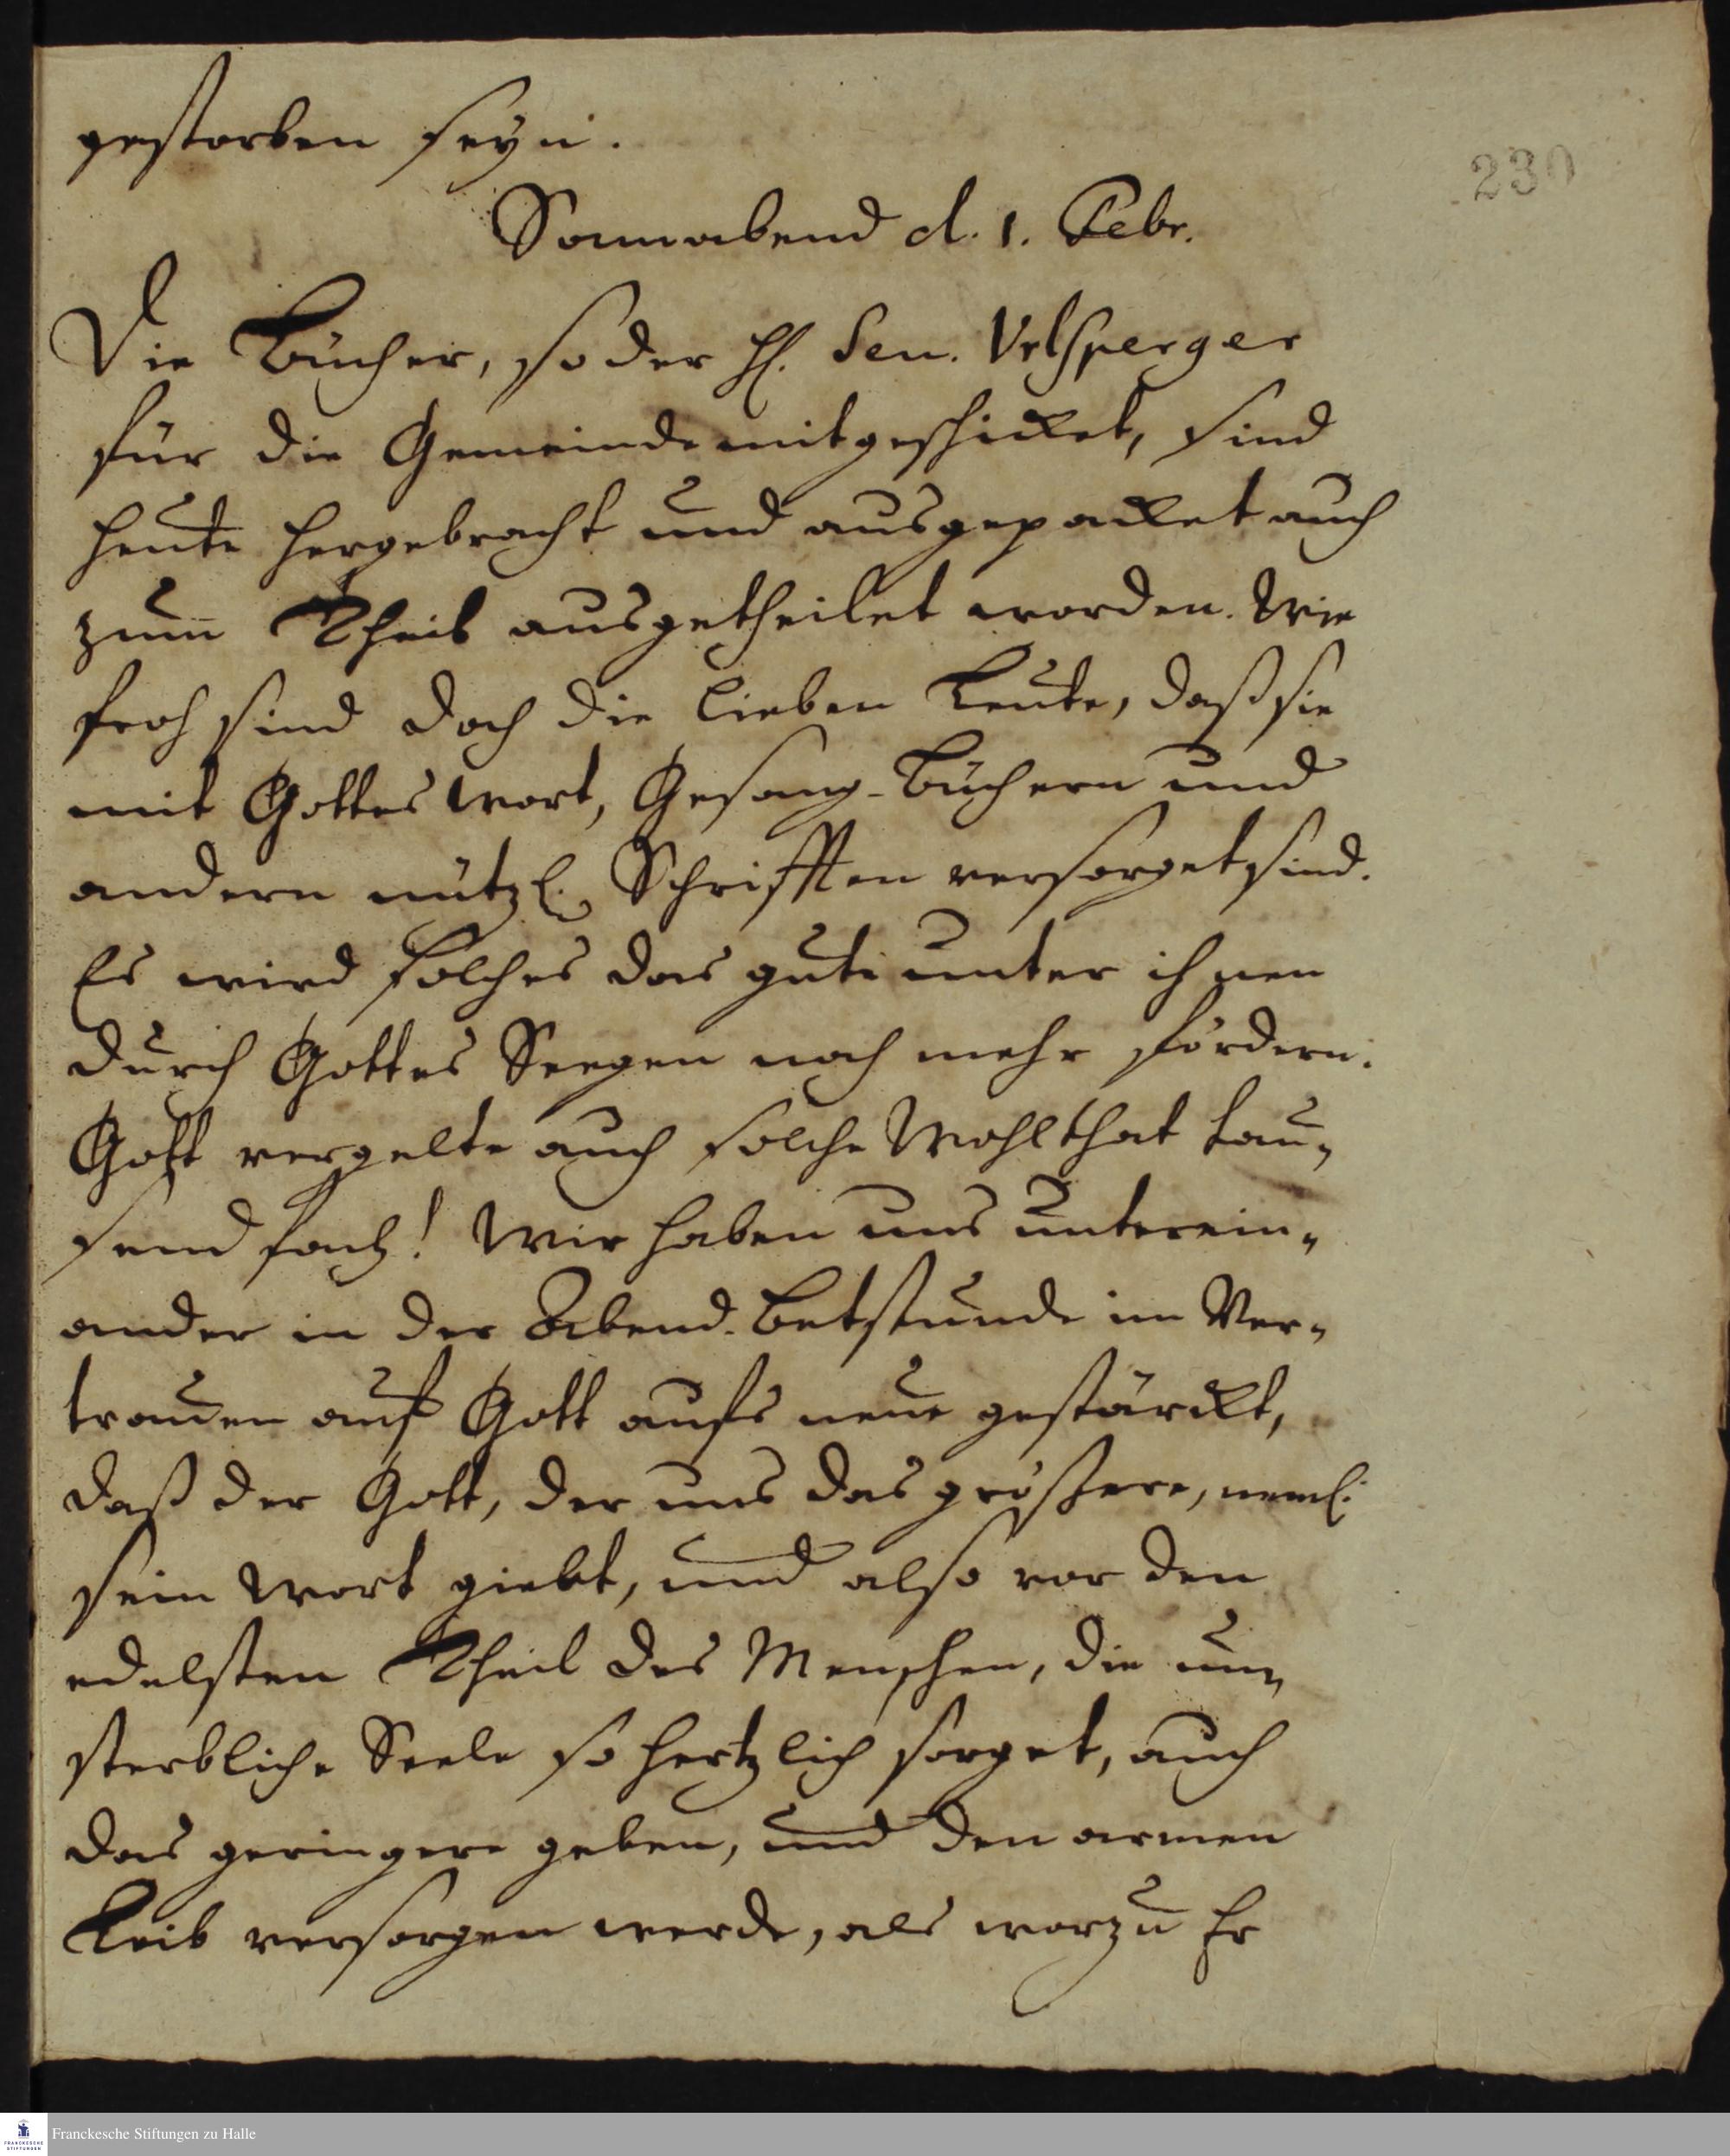 gestorben seyn.
230
Sonnabend d. 1. Febr.
Die Bücher, so der H. Sen. Urlsperger
für die Gemeinde mitgeschicket, sind
heute hergebracht und ausgepacket auch
zum Theil ausgetheilet worden. Wie
froh sind doch die lieben Leute, daß sie
mit Gottes Wort, Gesang-Büchern und
andern nützl. Schrifften versorget sind.
Es wird solches das gute unter ihnen
durch Gottes Seegen noch mehr fördern.
Gott vergelte auch solche Wohlthat tau„
send fach! Wir haben uns unterein„
ander in der Abend-Betstunde im Ver„
trauen auf Gott aufs neue gestärckt,
daß der Gott, der uns das größere, neml.
sein Wort giebt, und also vor den
edelsten Theil des Menschen, die un„
sterbliche Seele so hertzlich sorget, auch
das geringere geben, und den armen
Leib versorgen werde, als worzu Er
FRANCKESCHE STIFTUNGEN
Franckesche Stiftungen zu Halle